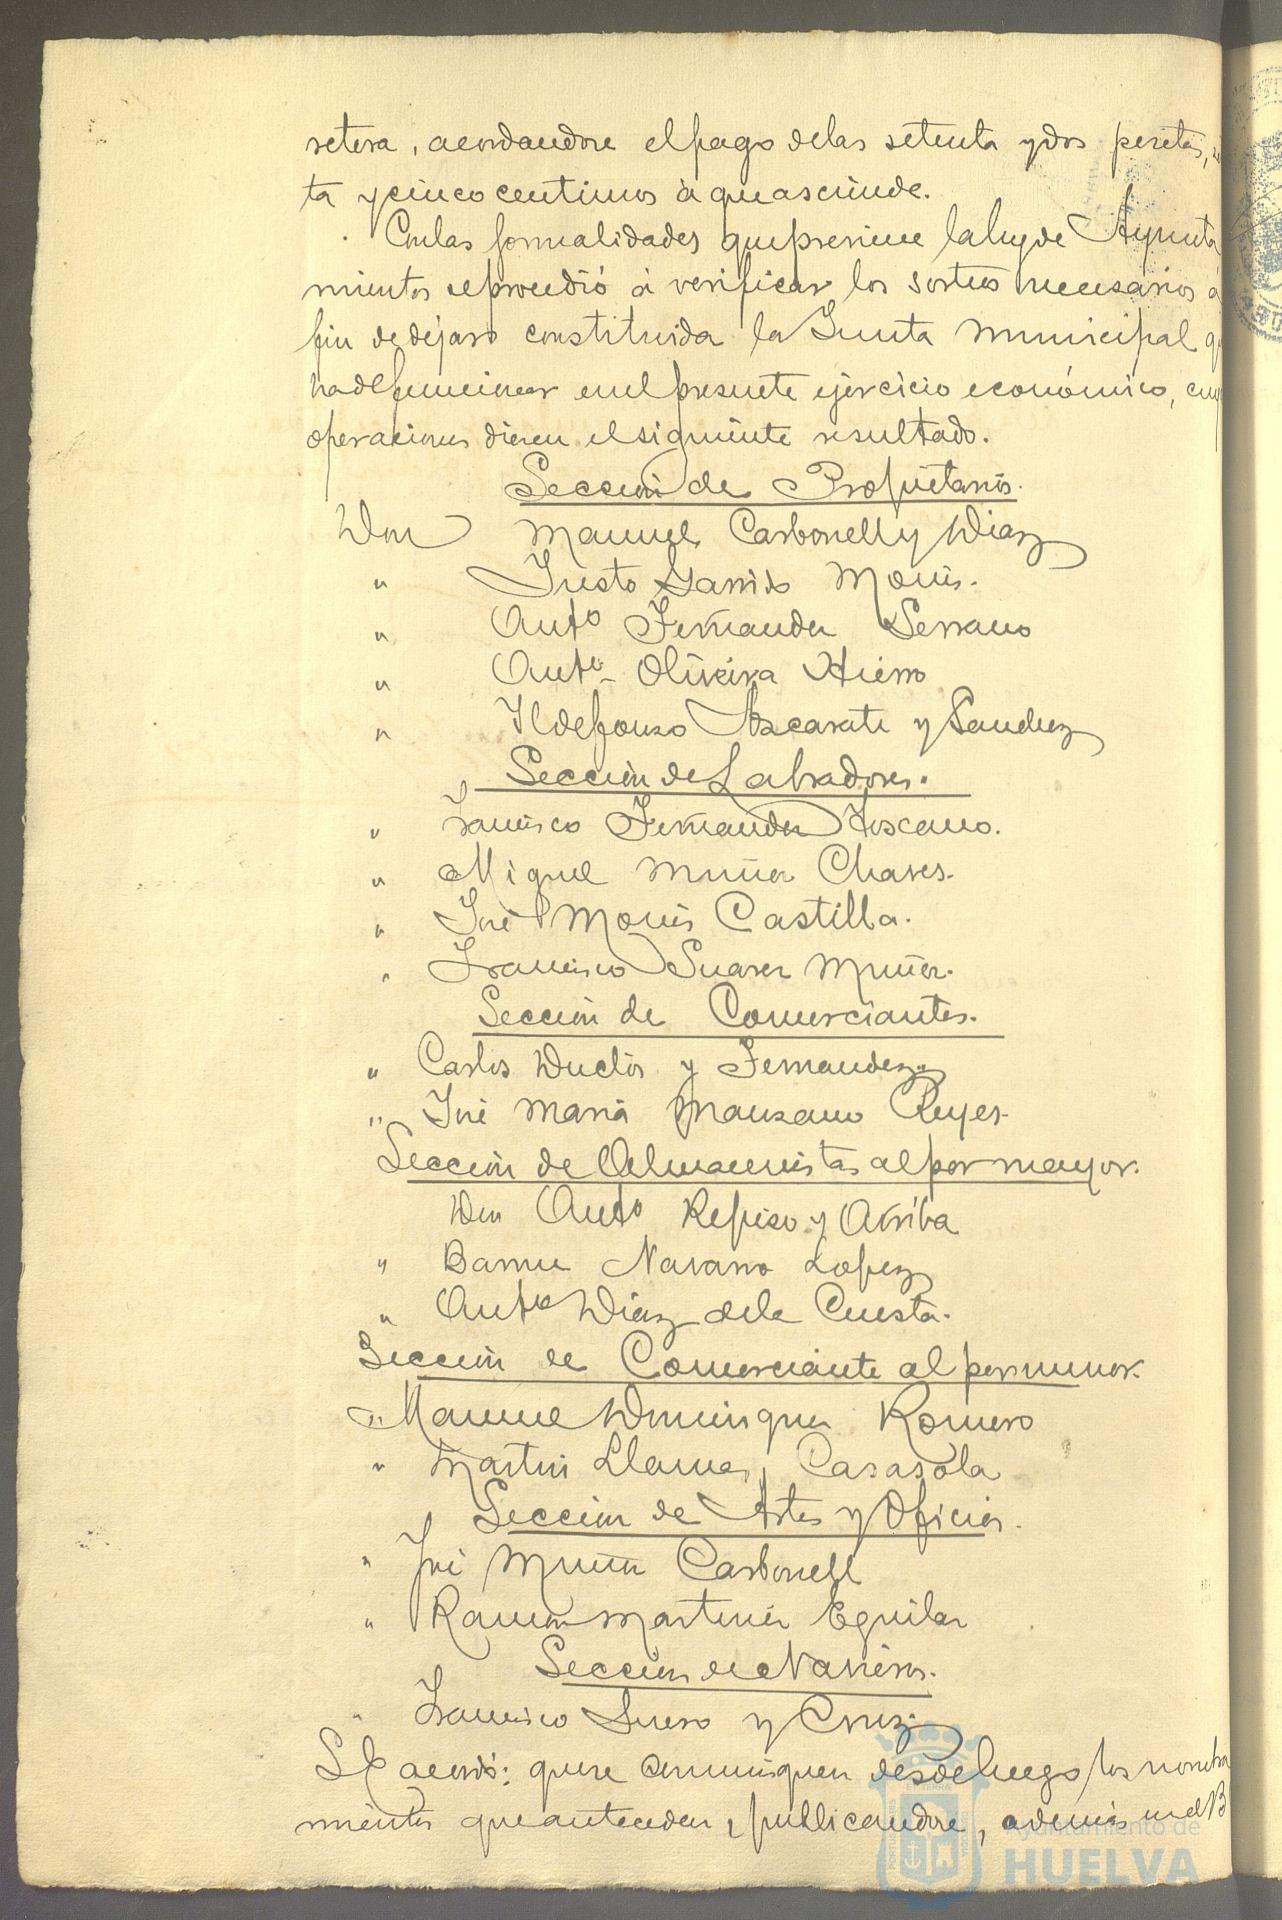 retera, acordandose el pago de las setenta y dos pesetas,
ta y cinco centimos á que asciende.
Con las formalidades que previene la ley de Ayunta
mientos se procedió á verificar los sorteos necesarios á
fin de dejar constituida la Junta Municipal q
ha de funcionar en el presente ejercicio económico, cuy
operaciones dieron el siguiente resultado.
Sección de Propietarios.
Don Manuel Carbonell y Diaz
" Justo Garrido Monis.
" Antº Fernandez Serrano
" Antº Oliveira Hierro
" Ildefonso Azcarate y Sanchez
Sección de Labradores.
" Francisco Fernandez Toscano.
" Miguel Muñoz Chaves.
" José Monis Castilla.
" Francisco Suarez Muñoz.
Sección de Comerciantes.
" Carlos Duclós y Fernandez.
" José Maria Manzano Reyes.
Sección de Almacenistas al por mayor.
Don Antº Repiso y Arriba
" Navarro Lopez
" Antº Diaz de la Cuesta.
Sección de Comerciante al por menor.
" Manuel Dominguez Romero
" Martin Llames Casasola
Sección de Artes y Oficios.
" José Muñoz Carbonell
" Ramon Martinez Eguilar
Sección de Navieros.
" Francisco Suero y Cruz.
Se acordó: que se comuniquen desde luego los nombra
mientos que anteceden, publicandose, además en el B
Ayuntamiento de
HUELVA